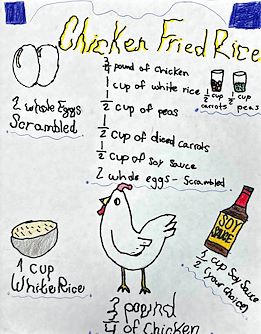 Chicken Fried Rice
3/4 pound of chicken
1 cup of white rice
1/2 cup of peas
1/2 cup of diced carrots
1/2 cup of Soy Sauce
2 whole eggs - Scrambled
2 whole Eggs
Scrambled
1/2 cup carrots
1/2 cup peas
1 cup
White Rice
SOY
SAUCE
1/2 cup Soy Sauce
(your choice)
pound
of Chicken